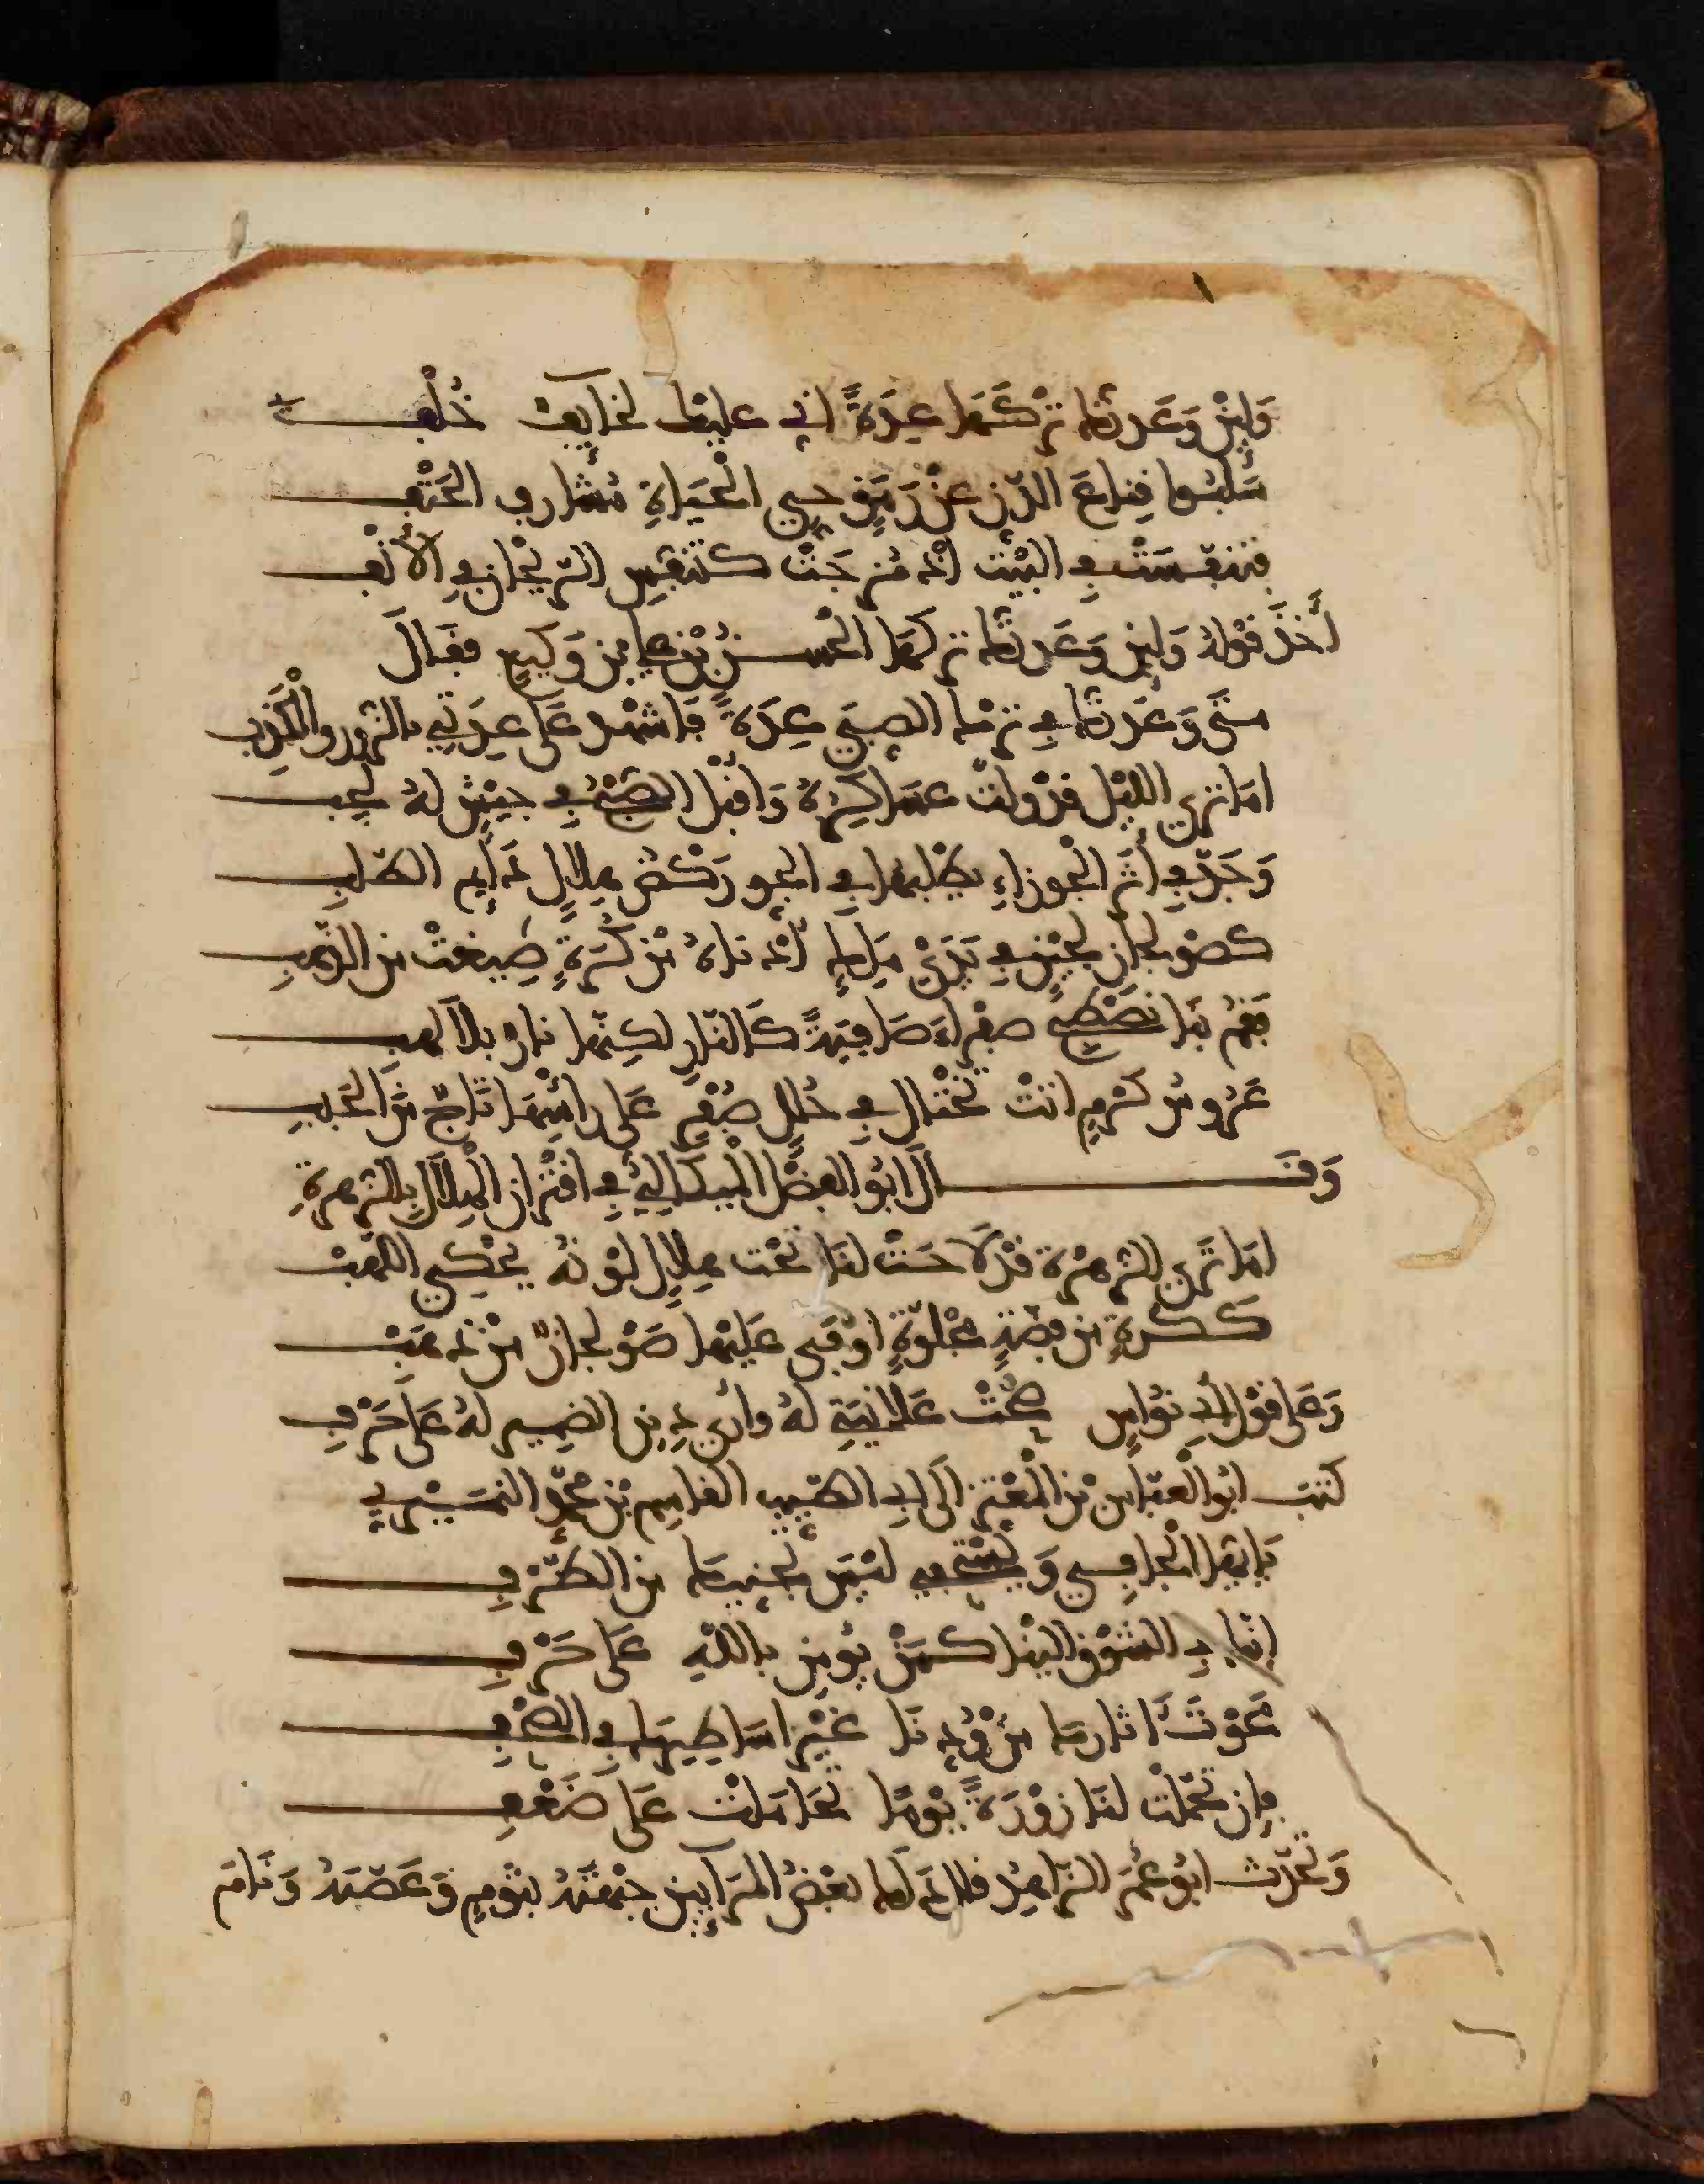 وَلَئِنْ وَعَدتُّكَ تَرْكَهَا عِدَةً اني عليك لخايف خُلْفِ
سَلَبُوا قِناعَ الدَّنِ عَنْ رَمَقٍ حي الْحَيَاةِ مُشارف الحَتْفِ
فتنفّسَتْ في البَيْت اذ مُزِجَتْ كتنفّسِ الرّيْحان في الأنْفِ
أَخَذَ قوْلهُ وَلئن وَعَدتُّكَ تركهَا الحُسـنُ بْن علي بن وَكيعٍ فقَالَ
متَى وَعَدتُكَ في تركِ الصبَى عِدَةً فَاشْهد عَلَى عِدَتِي بالزور والْكَذِبِ
امَا ترى الليْل قدْ ولّت عسَاكرهُ وَاقبَل الصّبْحُ في جيْشٍ لهُ لجِبِ
وَجَدَّ في أَثَرِ الجْوزاءِ يطْلبهَا في الجو رَكْض هلالٍ دَايم الطلبِ
كصَوْلجان لجَيْنٍ في يَدَيْ مَلِكٍ أدْناهُ مْن كُرَةٍ صِيغتْ من الذّهبِ
فقُم بنَا نَصْطبح صفْراءَ صَافيَةً كَالنّارِ لكنّها نارٌ بلاَ لهبِ
عَرُوسُ كَرْمٍ اتتْ تخْتال في حُلَلٍ صُفْرٍ عَلَى راسِهَا تَاجٌ منَ الحَبَبِ
وَقَـــالَ ابُو الفضْل الْميكَاليُّ في اقتْران الْهلاَلِ بالزّهرةِ
امَا تَرى الزّهرْة قدْ لاَحَتْ لنَا تحْت هلالٍ لوْنهُ يحْكي اللّهَبْ
كَكرةٍ من فِضّةٍ مجْلوّةٍ اوْفَى عَلَيْها صَوْلجانٌ منْ ذهَبْ
وَعَلى قوْل أبي نوَاسٍ صُحْتُ عَلانيَتي لهُ وأرى دِين الضمير لهُ عَلى حَرْفِ
كتبَ ابُو الْعبّاسِ بْن الْمعْتز الَى ابي الطّيب القاسِم بْن محمَّدٍ النميْري
يَا ايّها الْجافي وَيَسْتجْفي ليْسَ تجنّيك من الظّرْفِ
انّك في الشوْق الينْا كمَنْ يوُمن بالله عَلى حَرْفِ
محَوْتَ اثارك من وُدِّنَا غيْر اسَاطِيرك في الصّحْفِ
فإن تحمّلتْ لنَا زوْرَةً يوْمًا تحَامَلْتَ عَلى ضَعْفِ
وَتحدّث ابُو عُمَر الزّاهدُ قال دَلَك بعْضُ المرَآيين جبْهتَهُ بثومٍ وَعَصَبَهُ وَنَامَ